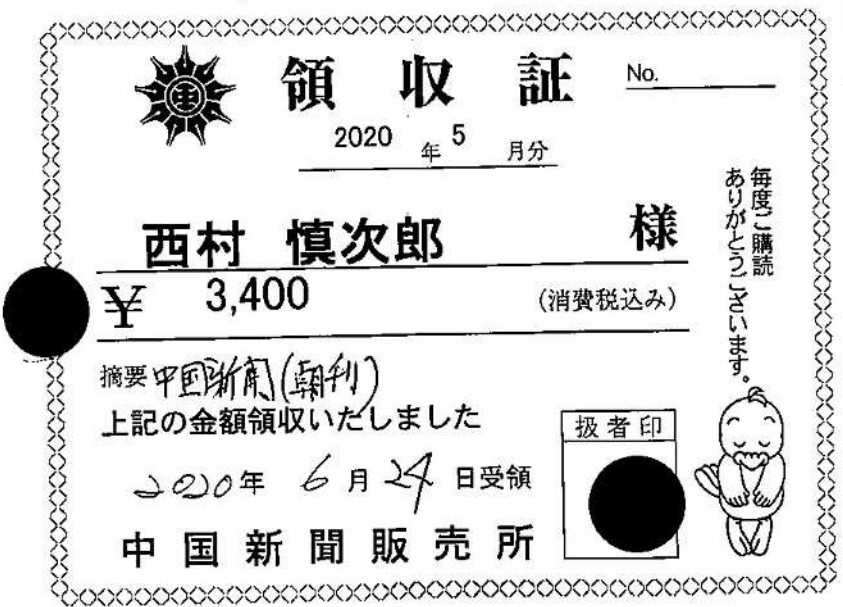 領収証
No.
2020 年 5 月分
西村 慎次郎 様
¥ 3,400 (消費税込み)
摘要 中国新聞(朝刊)
上記の金額領収いたしました
2020年 6月24日受領
扱者印
中国新聞販売所
毎度ご購読
ありがとうございます。